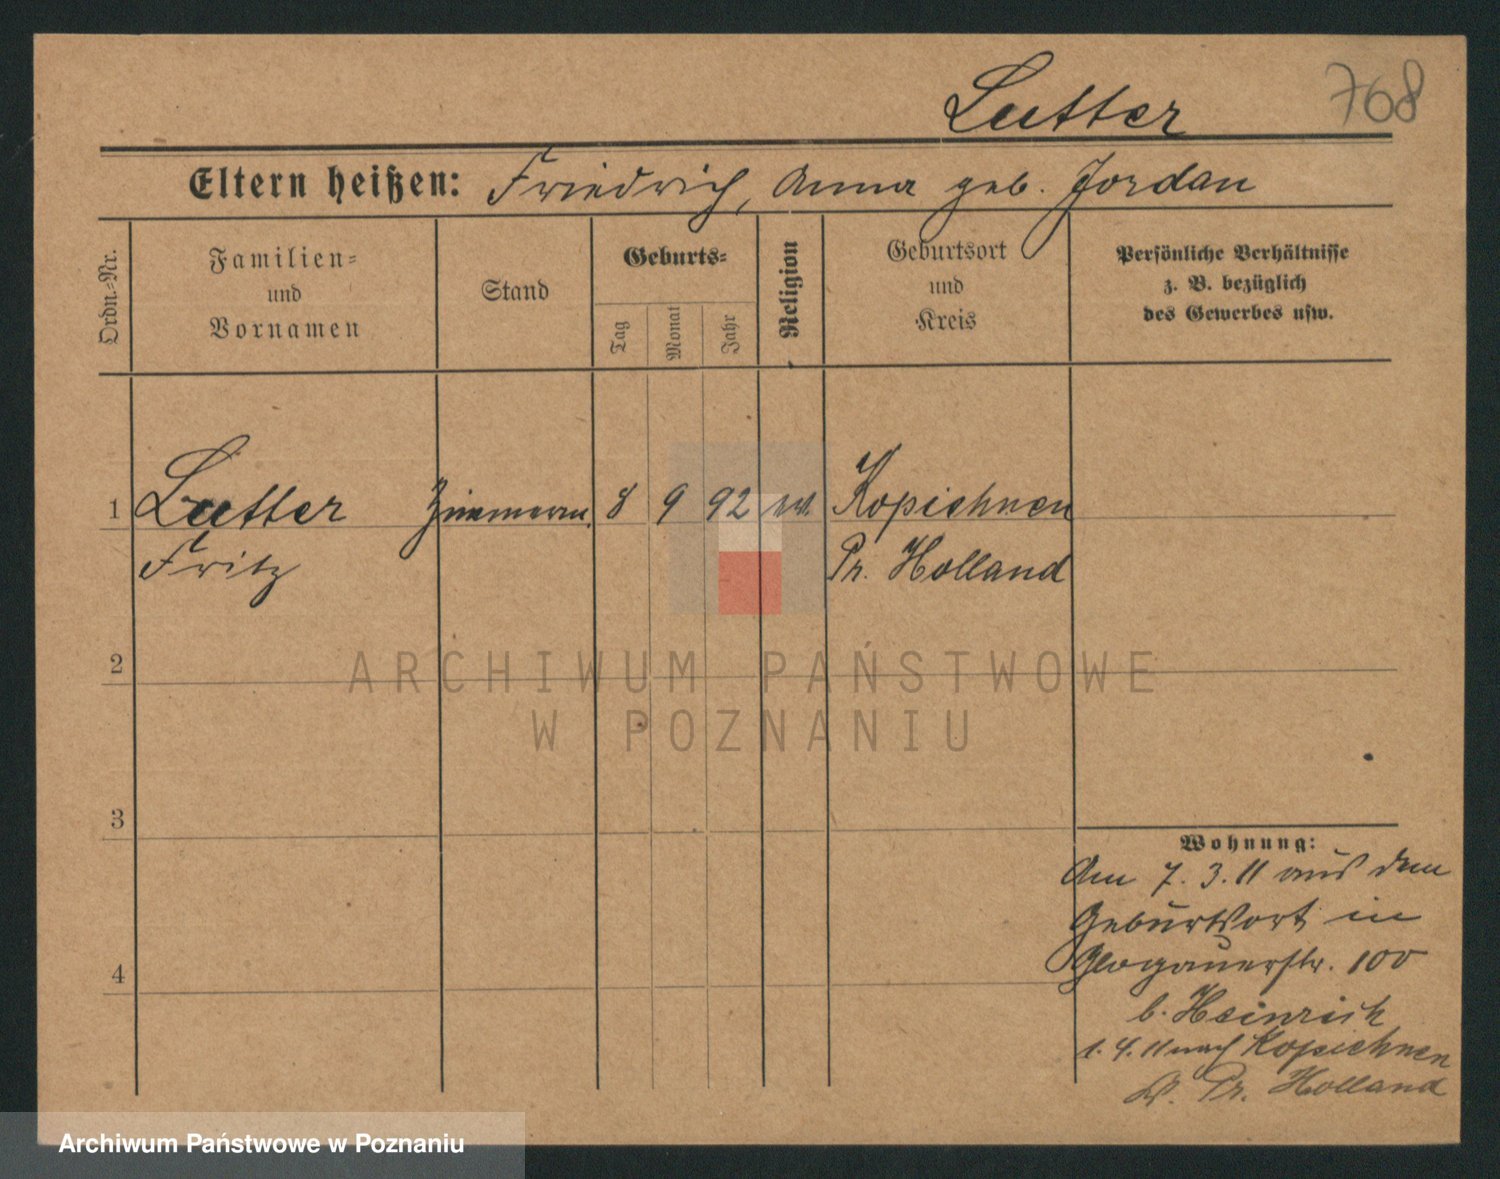 Lutter 768
Eltern heißen: Friedrich, Anna geb. Jordan
Ordn.-Nr.
Familien-
und
Vornamen
Stand
Geburts-
Tag
Monat
Jahr
Religion
Geburtsort
und
Kreis
Persönliche Verhältnisse
z. B. bezüglich
des Gewerbes usw.
1 Lutter Zimmerm. 8 9 92 ev. Kopiehnen
Fritz Pr. Holland
2
3
4
Wohnung:
Am 7.3.11 aus dem
Geburtsort in
Glogauerstr. 100
b. Heinrich
1.4.11 nach Kopiehnen
Pr. Holland
ARCHIWUM PAŃSTWOWE
W POZNANIU
Archiwum Państwowe w Poznaniu